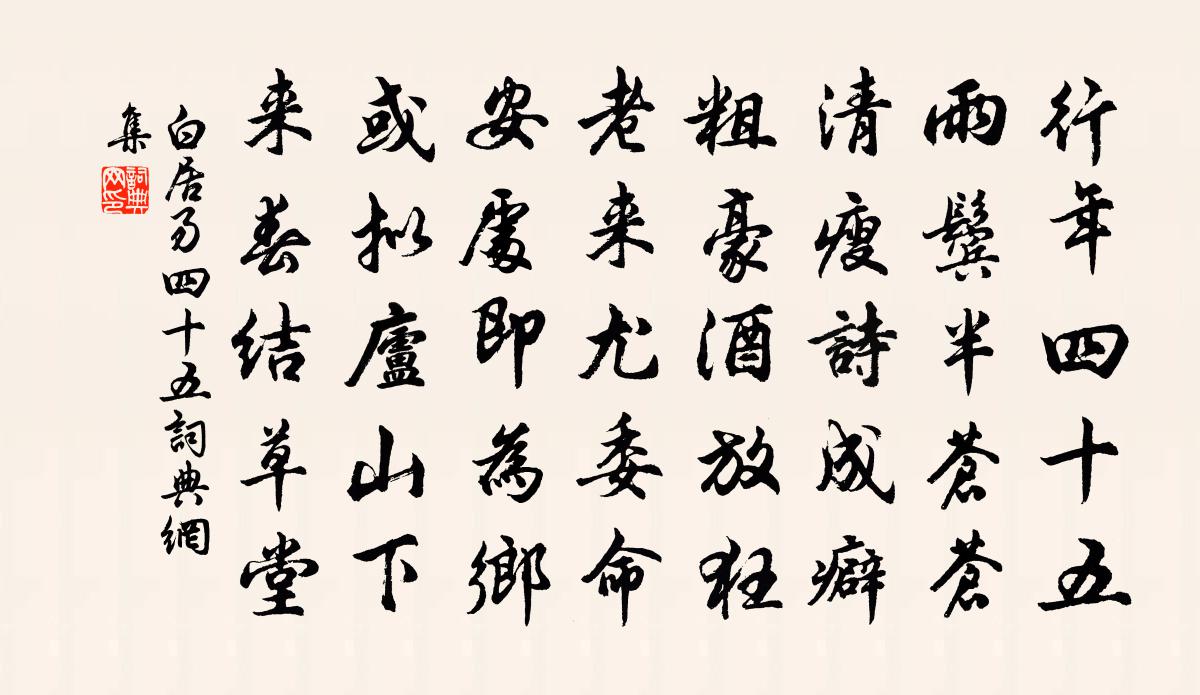 行年四十五
兩鬢半蒼蒼
清瘦詩成癖
粗豪酒放狂
老来尤委命
安處即為鄉
或拟廬山下
来春結草堂
白居易四十五詞典網
集
詞典
网印